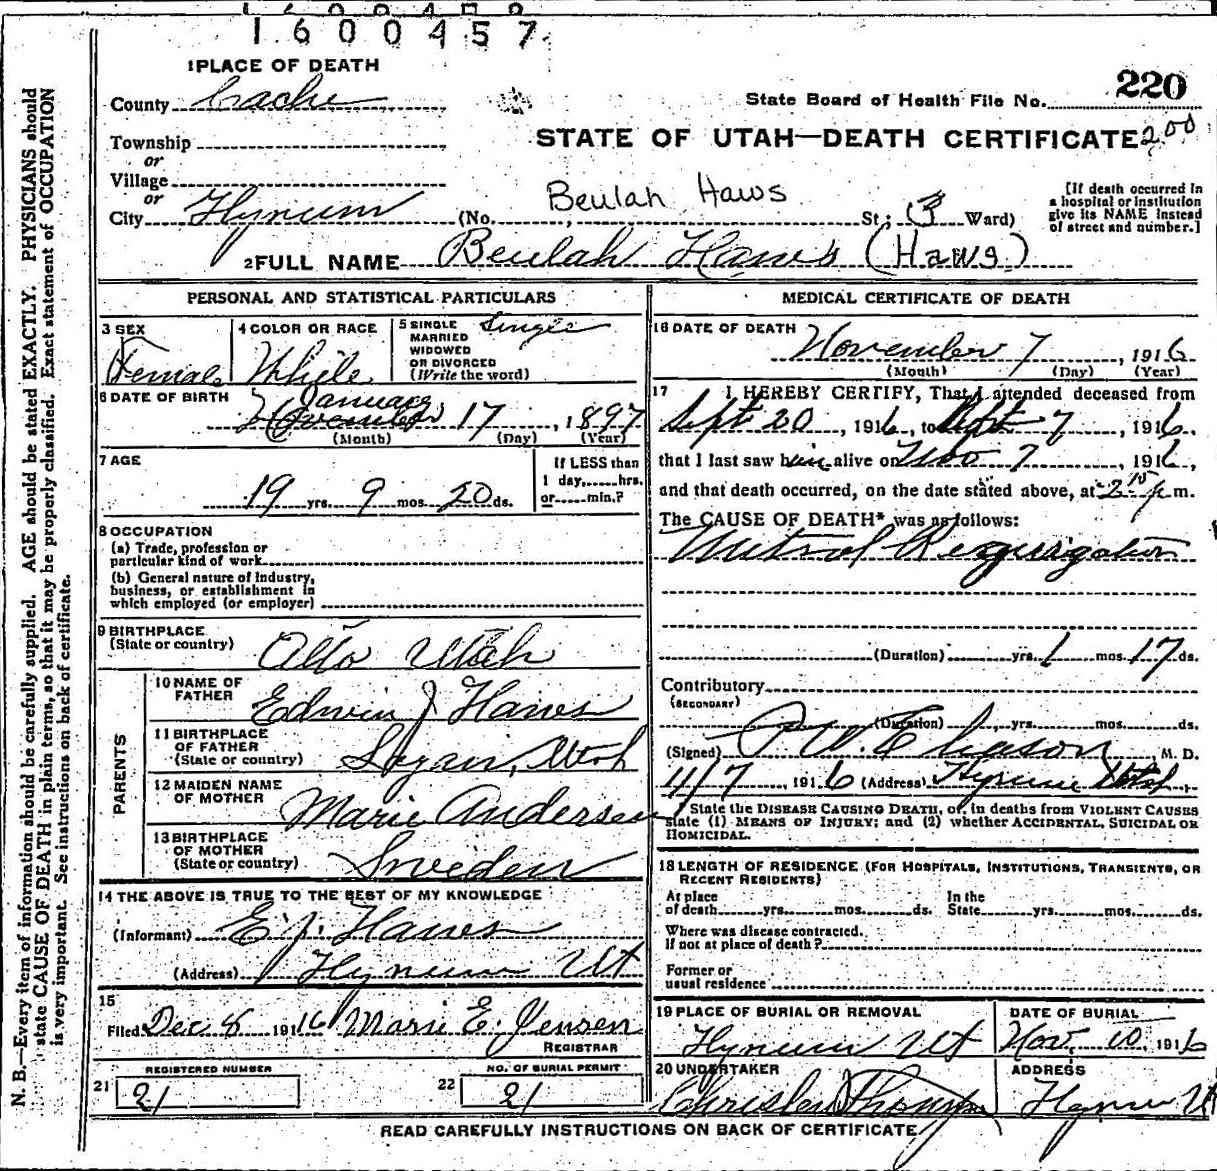 1600457
1 PLACE OF DEATH
County Cache
State Board of Health File No. 220
Township
or
STATE OF UTAH—DEATH CERTIFICATE 200
Village
or
City Hyrum (No. Beulah Haws St; 3 Ward)
[If death occurred in
a hospital or institution
give its NAME instead
of street and number.]
2 FULL NAME Beulah Haws (Haws)
PERSONAL AND STATISTICAL PARTICULARS
3 SEX
Female
4 COLOR OR RACE
White
5 SINGLE
MARRIED
WIDOWED
OR DIVORCED
(Write the word)
Single
6 DATE OF BIRTH
January
November 17, 1897
(Month) (Day) (Year)
7 AGE
19 yrs. 9 mos. 20 ds.
If LESS than
1 day, hrs.
or min.?
8 OCCUPATION
(a) Trade, profession or
particular kind of work
(b) General nature of industry,
business, or establishment in
which employed (or employer)
9 BIRTHPLACE
(State or country)
Alto Utah
PARENTS
10 NAME OF
FATHER
Edwin J Haws
11 BIRTHPLACE
OF FATHER
(State or country)
Logan, Utah
12 MAIDEN NAME
OF MOTHER
Marie Andersen
13 BIRTHPLACE
OF MOTHER
(State or country)
Sweden
14 THE ABOVE IS TRUE TO THE BEST OF MY KNOWLEDGE
(Informant) E. J. Haws
(Address) Hyrum Ut
15
Filed Dec 8 1916 Marie E. Jensen
REGISTRAR
21 REGISTERED NUMBER
21
22 NO. OF BURIAL PERMIT
21
MEDICAL CERTIFICATE OF DEATH
16 DATE OF DEATH
November 7, 1916
(Month) (Day) (Year)
17 I HEREBY CERTIFY, That I attended deceased from
Sept 20, 1916, to 7, 1916,
that I last saw h alive on Nov 7, 1916,
and that death occurred, on the date stated above, at 2 15 p. m.
The CAUSE OF DEATH* was as follows:
Mitral Regurgitation
(Duration) yrs. 1 mos. 17 ds.
Contributory
(SECONDARY)
(Duration) yrs. mos. ds.
(Signed) Eliason M. D.
11/7, 1916 (Address) Hyrum Utah
State the DISEASE CAUSING DEATH, or, in deaths from VIOLENT CAUSES
state (1) MEANS OF INJURY; and (2) whether ACCIDENTAL, SUICIDAL OR
HOMICIDAL.
18 LENGTH OF RESIDENCE (FOR HOSPITALS, INSTITUTIONS, TRANSIENTS, OR
RECENT RESIDENTS)
At place
of death yrs. mos. ds.
In the
State yrs. mos. ds.
Where was disease contracted.
If not at place of death?
Former or
usual residence
19 PLACE OF BURIAL OR REMOVAL
Hyrum Ut
DATE OF BURIAL
Nov. 10. 1916
20 UNDERTAKER
ADDRESS
Hyrum U
READ CAREFULLY INSTRUCTIONS ON BACK OF CERTIFICATE
N. B.—Every item of information should be carefully supplied. AGE should be stated EXACTLY. PHYSICIANS should
state CAUSE OF DEATH in plain terms, so that it may be properly classified. Exact statement of OCCUPATION
is very important. See instructions on back of certificate.